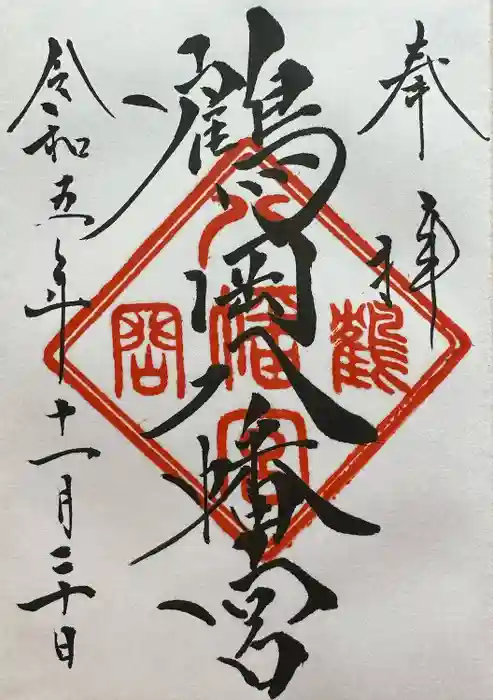 奉拝
鶴岡八幡宮
令和五年十一月三十日
鶴
岡
八幡宮